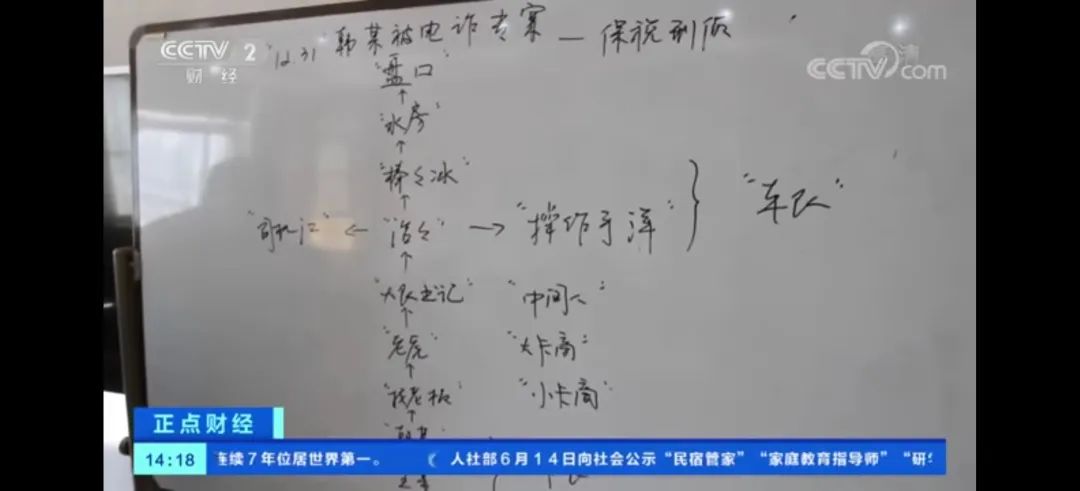 CCTV 2
财经
CCTV com
"12.31"韩某被电诈专案—保税刑侦
"盘口"
↑
"水房"
↑
↑
← → "操作手洋" } "车队"
↑
"大队书记" "中间人"
↑
"老虎" "大卡商"
↑
"钱老板" "小卡商"
↑
正点财经
14:18 连续7年位居世界第一。 人社部6月14日向社会公示“民宿管家”“家庭教育指导师”“研